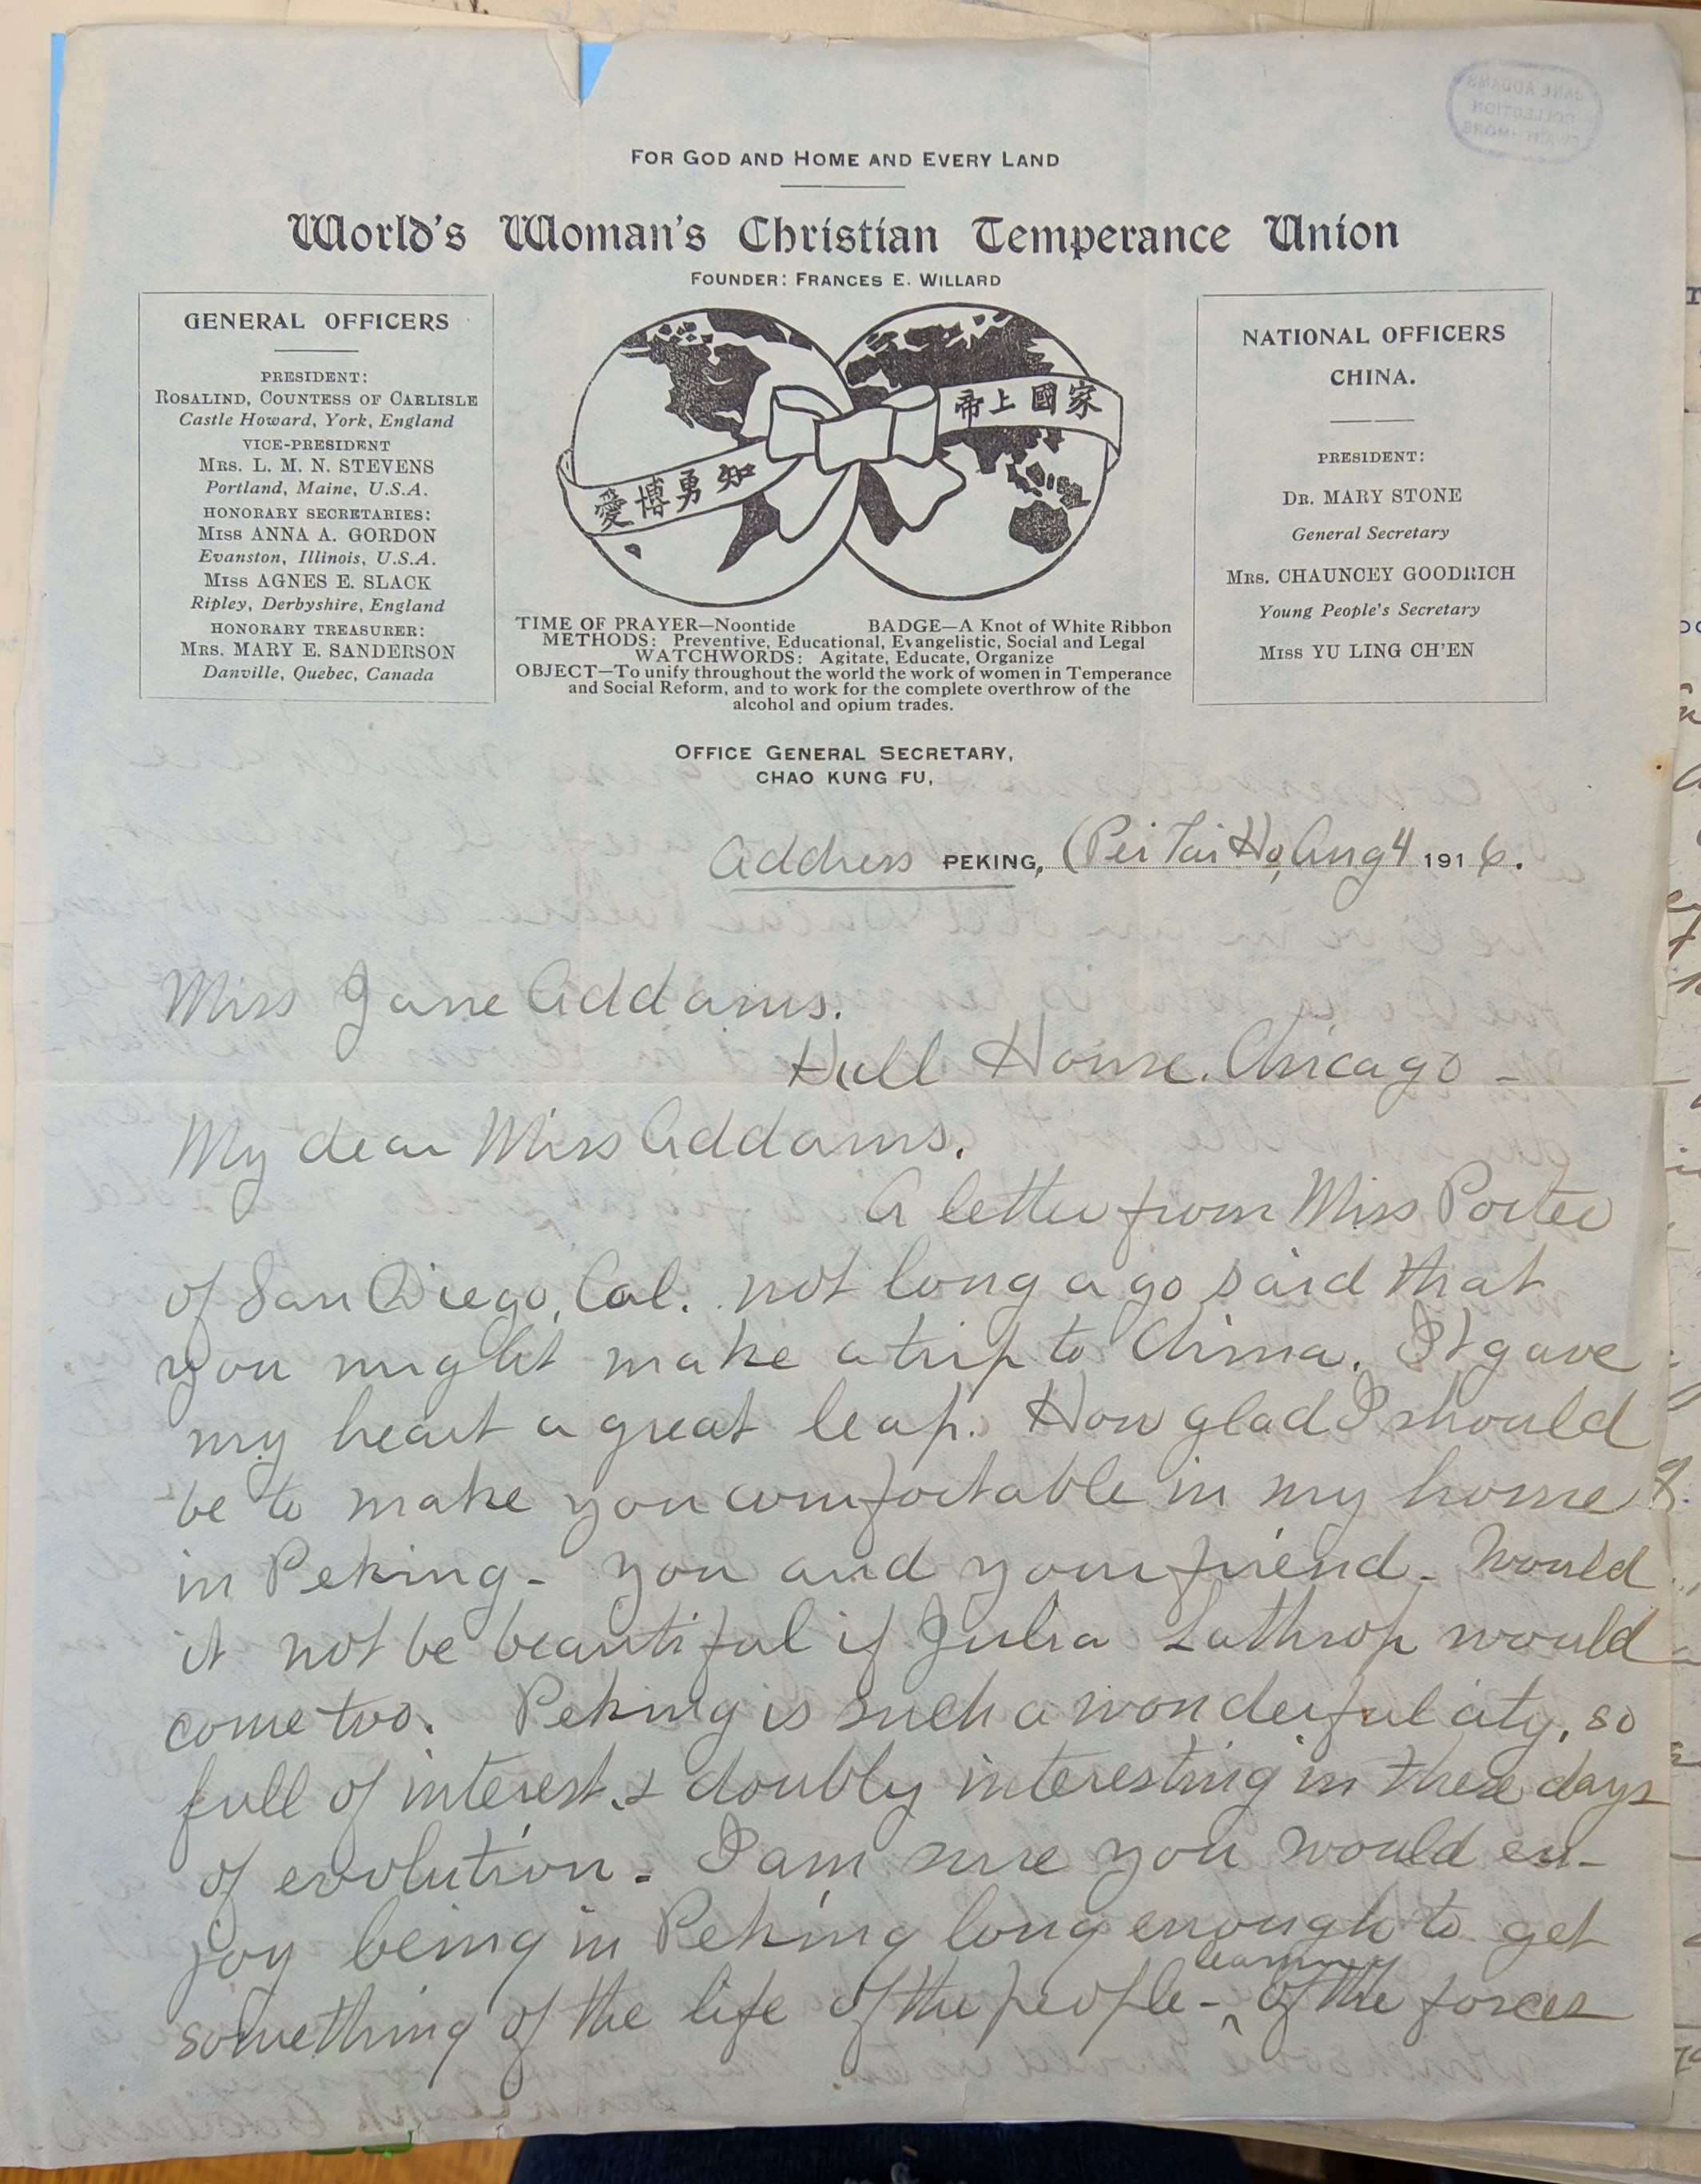 JANE ADDAMS
COLLECTION
SWARTHMORE
FOR GOD AND HOME AND EVERY LAND
World's Woman's Christian Temperance Union
FOUNDER: FRANCES E. WILLARD
GENERAL OFFICERS
PRESIDENT:
ROSALIND, COUNTESS OF CARLISLE
Castle Howard, York, England
VICE-PRESIDENT
MRS. L. M. N. STEVENS
Portland, Maine, U.S.A.
HONORARY SECRETARIES:
MISS ANNA A. GORDON
Evanston, Illinois, U.S.A.
MISS AGNES E. SLACK
Ripley, Derbyshire, England
HONORARY TREASURER:
MRS. MARY E. SANDERSON
Danville, Quebec, Canada
帝上國家
愛博勇知
TIME OF PRAYER—Noontide BADGE—A Knot of White Ribbon
METHODS: Preventive, Educational, Evangelistic, Social and Legal
WATCHWORDS: Agitate, Educate, Organize
OBJECT—To unify throughout the world the work of women in Temperance
and Social Reform, and to work for the complete overthrow of the
alcohol and opium trades.
NATIONAL OFFICERS
CHINA.
PRESIDENT:
DR. MARY STONE
General Secretary
MRS. CHAUNCEY GOODRICH
Young People's Secretary
MISS YU LING CH'EN
OFFICE GENERAL SECRETARY,
CHAO KUNG FU,
Address PEKING, (Pei Tai Ho, Aug 4 1916.
Miss Jane Addams.
Hull House. Chicago -
My dear Miss Addams.
A letter from Miss Porter
of San Diego, Cal. not long ago said that
you might make a trip to China. It gave
my heart a great leap. How glad I should
be to make you comfortable in my home
in Peking - you and your friend - Would
it not be beautiful if Julia Lathrop would
come too. Peking is such a wonderful city, so
full of interest, & doubly interesting in these days
of evolution. I am sure you would en-
joy being in Peking long enough to get
learning
something of the life of the people - ^ of the forces